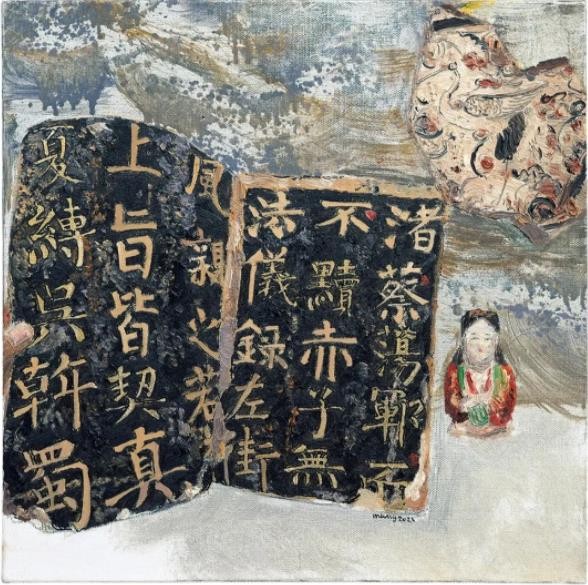 渚蔡蕩鄆而
不黷赤子無
法儀録左街
風親之若
上旨皆契真
夏縛吳斡蜀